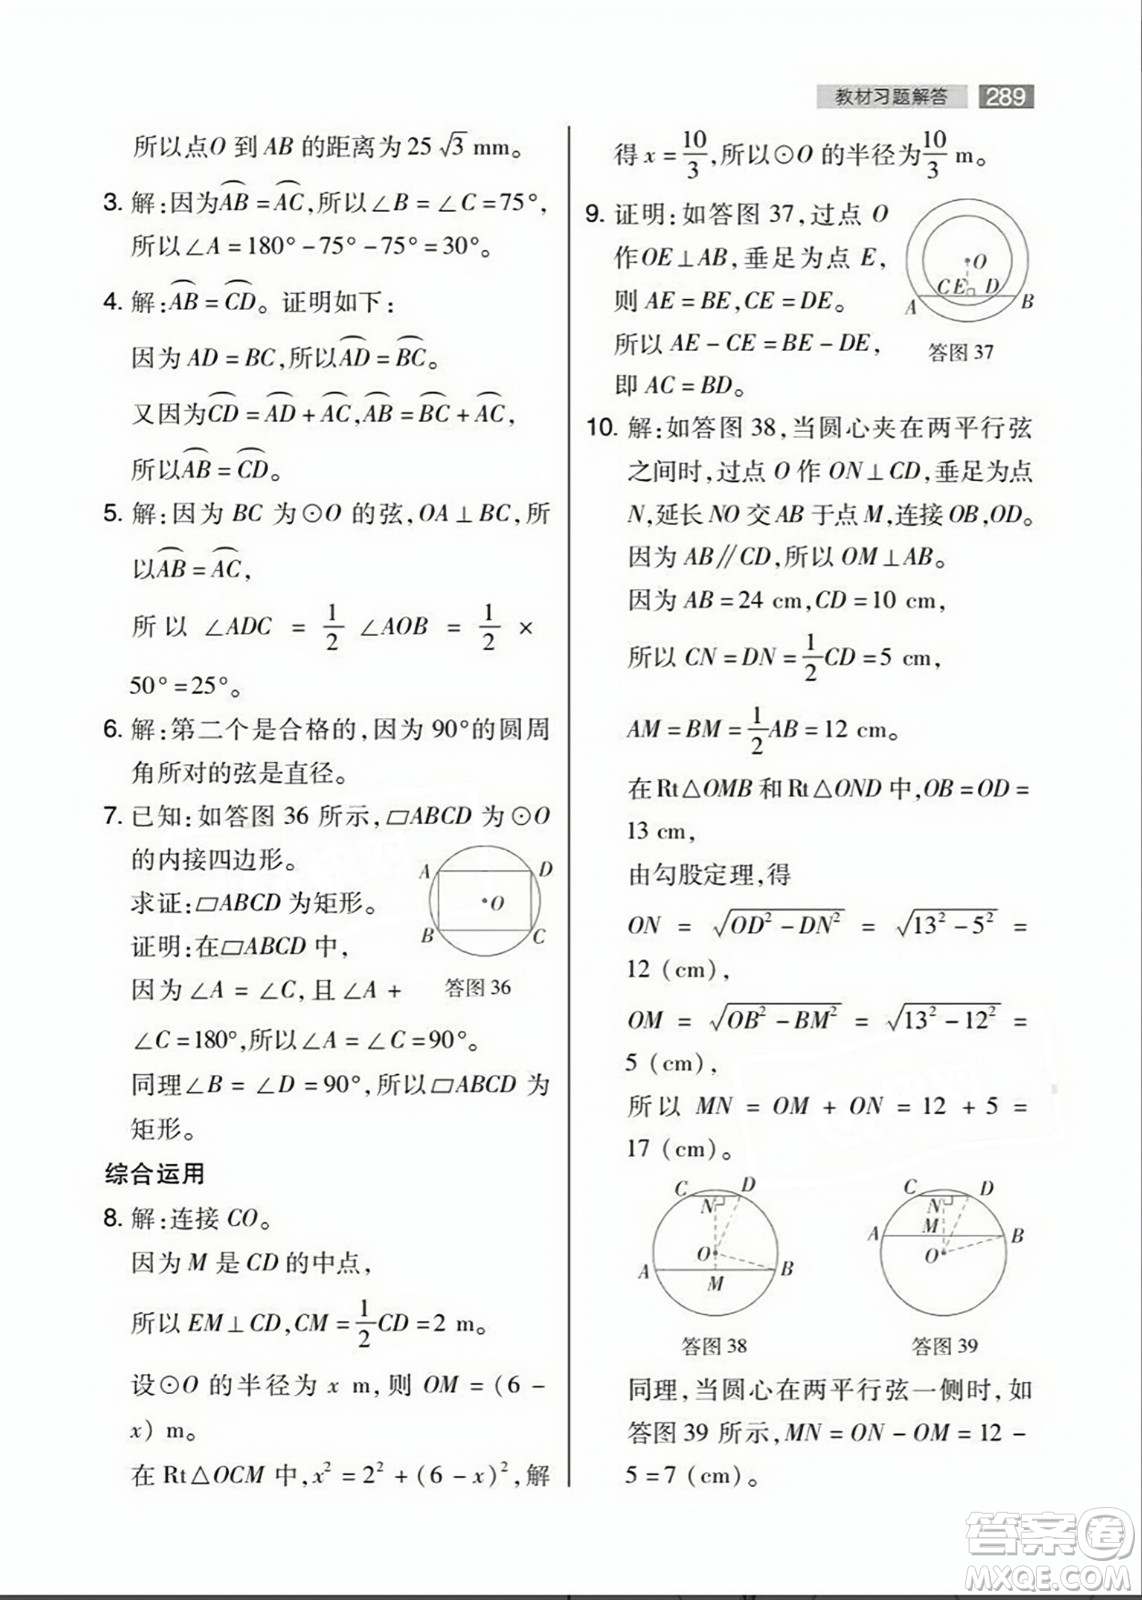 教材习题解答 289
所以点O 到 AB 的距离为 25√3 mm。
3. 解:因为⌒AB=⌒AC,所以∠B=∠C=75°,
所以∠A=180°-75°-75°=30°。
4. 解:⌒AB=⌒CD。证明如下:
因为 AD=BC,所以⌒AD=⌒BC。
又因为⌒CD=⌒AD+⌒AC,⌒AB=⌒BC+⌒AC,
所以⌒AB=⌒CD。
5. 解:因为 BC 为⊙O 的弦,OA⊥BC,所
以⌒AB=⌒AC,
所以 ∠ADC = 1/2 ∠AOB = 1/2 ×
50°=25°。
6. 解:第二个是合格的,因为 90°的圆周
角所对的弦是直径。
7. 已知:如答图 36 所示,▱ABCD 为⊙O
的内接四边形。
求证:▱ABCD 为矩形。
证明:在▱ABCD 中,
因为∠A=∠C,且∠A+
∠C=180°,所以∠A=∠C=90°。
同理∠B=∠D=90°,所以▱ABCD 为
矩形。
A D
O
B C
答图 36
综合运用
8. 解:连接 CO。
因为 M 是 CD 的中点,
所以 EM⊥CD,CM=1/2CD=2 m。
设⊙O 的半径为 x m,则 OM=(6-
x) m。
在 Rt△OCM 中,x²=2²+(6-x)²,解
得 x=10/3,所以⊙O 的半径为10/3 m。
9. 证明:如答图 37,过点 O
作OE⊥AB,垂足为点 E,
则 AE=BE,CE=DE。
所以 AE-CE=BE-DE,
即 AC=BD。
O
C E D
A B
答图 37
10. 解:如答图 38,当圆心夹在两平行弦
之间时,过点 O 作 ON⊥CD,垂足为点
N,延长 NO 交 AB 于点 M,连接 OB,OD。
因为 AB∥CD,所以 OM⊥AB。
因为 AB=24 cm,CD=10 cm,
所以 CN=DN=1/2CD=5 cm,
AM=BM=1/2AB=12 cm。
在 Rt△OMB 和 Rt△OND 中,OB=OD=
13 cm,
由勾股定理,得
ON = √(OD²-DN²) = √(13²-5²) =
12 (cm),
OM = √(OB²-BM²) = √(13²-12²) =
5 (cm),
所以 MN = OM + ON = 12 + 5 =
17 (cm)。
C D
N
O
A M B
答图 38
C D
N
A M B
O
答图 39
同理,当圆心在两平行弦一侧时,如
答图 39 所示,MN=ON-OM=12-
5=7 (cm)。
答案卷
MXQE.COM